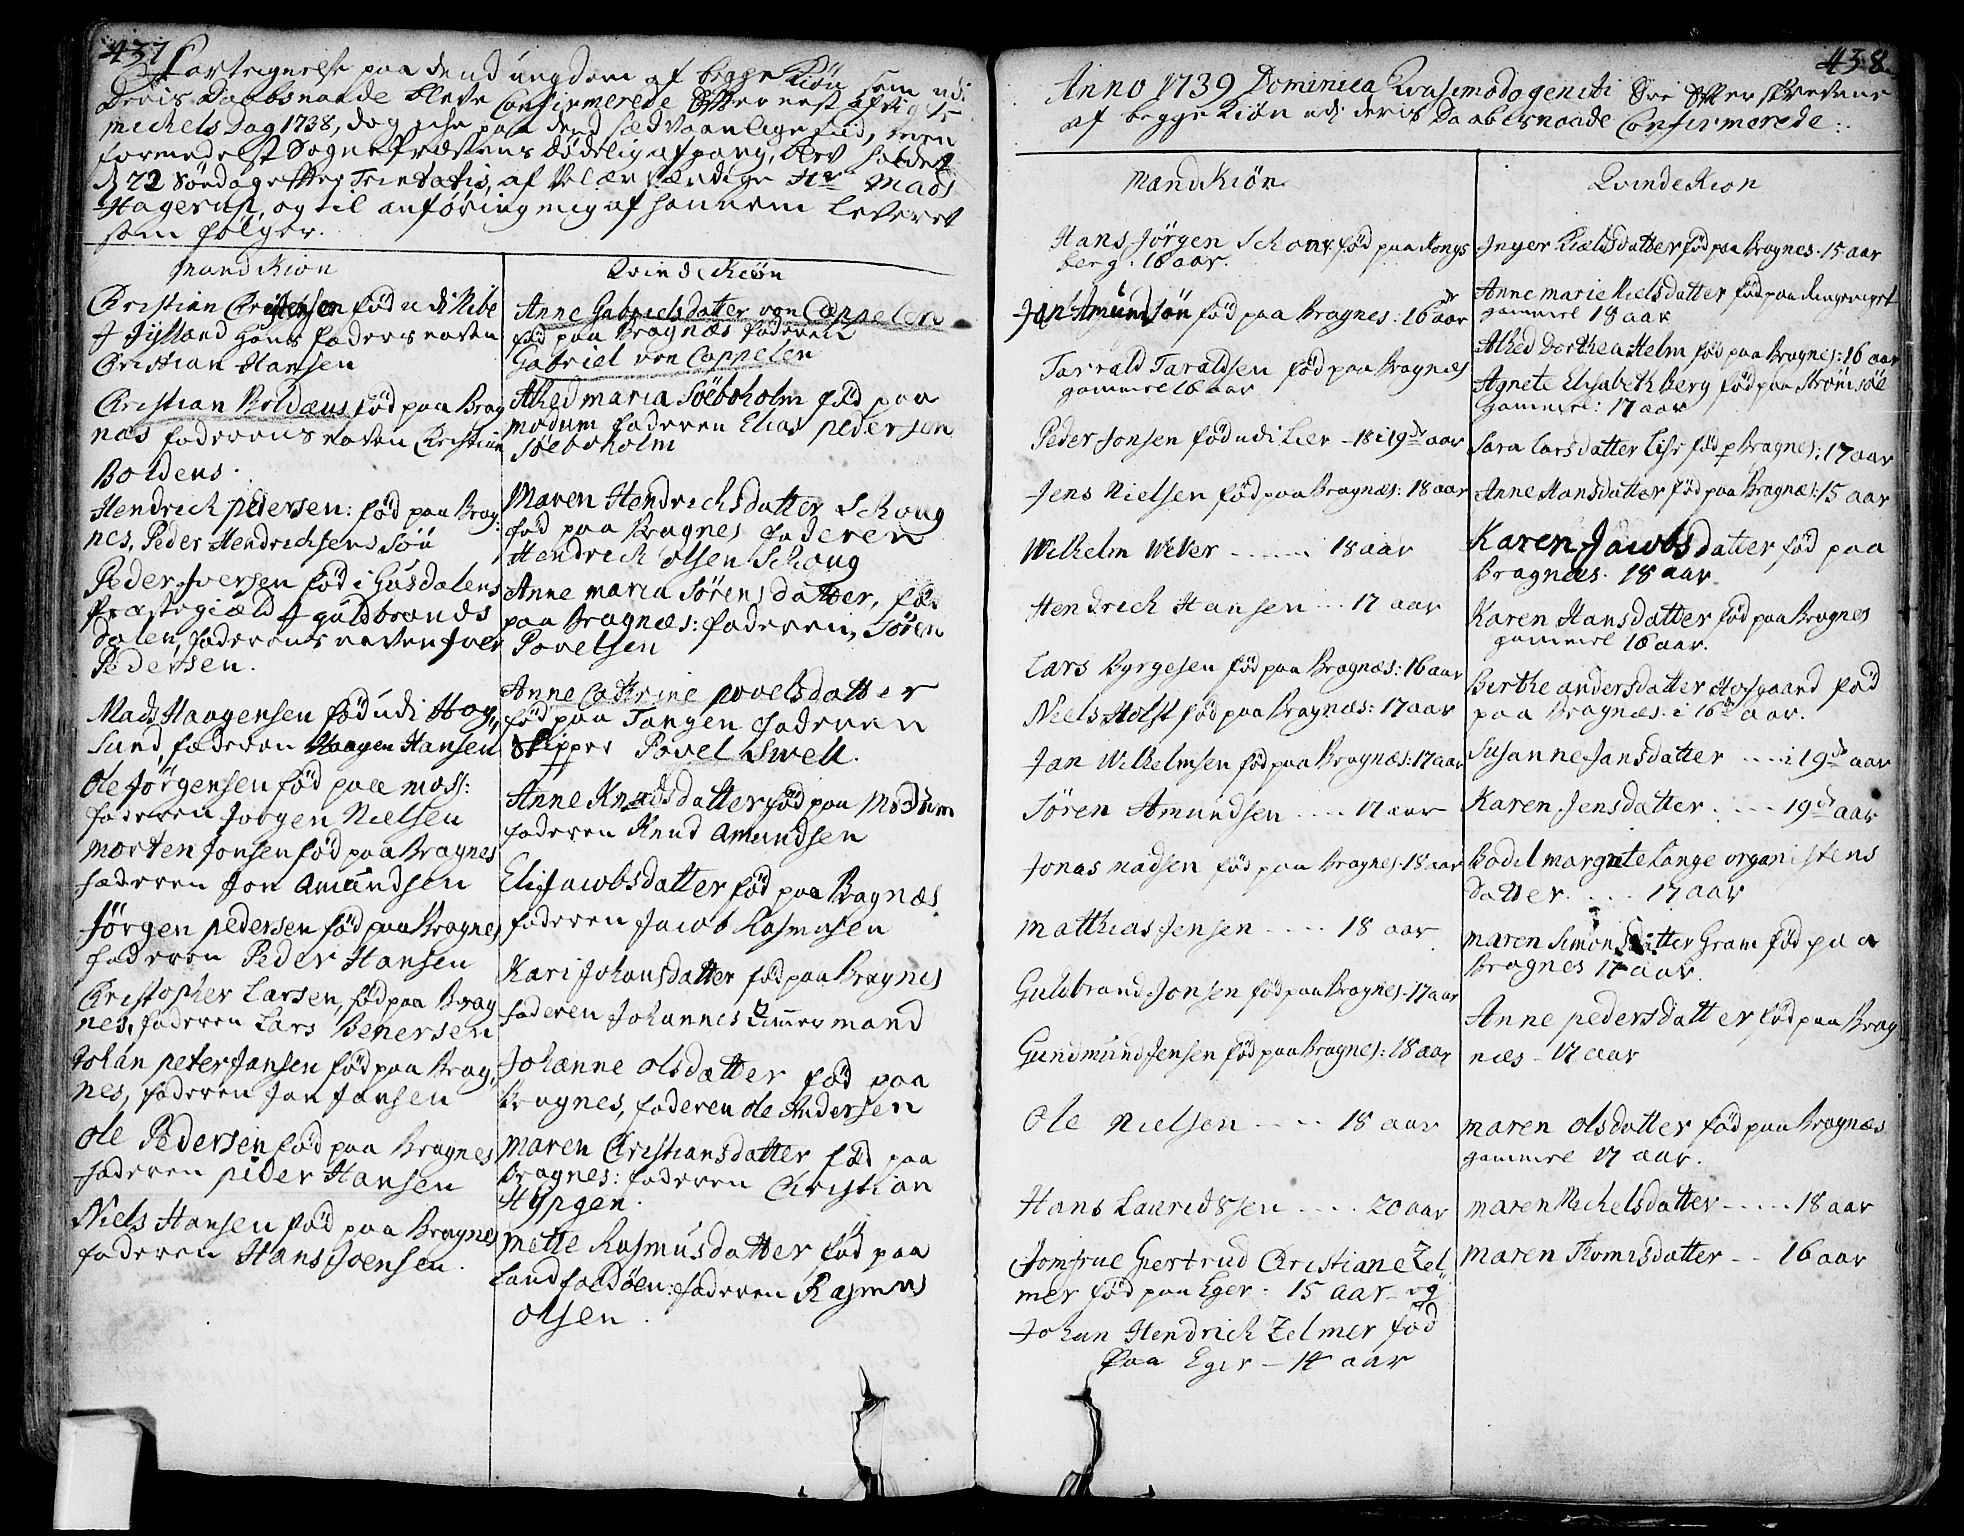 437
Fortegnelse paa dend ungdom af begge Kiön som udi
Deris Daabsnaade bleve Confirmerede
michels Dag 1738, dog iche paa dend sædvaanlige tid, men
formedelst Sogne Præstens dødelig afgang, blev holdet
d 22 Søndag efter Trinitatis, af Velærværdige Hr Mads
Hagerup, og til anföring mig af hannem leveret
som fölger.
Mand Kiön
Christian Christensen föd udi Ribe
J Jylland hans faders naven
Christian Hansen
Christian Boldæus föd paa Brag
næs faderens naven Christian
Boldeus.
Hendrich pedersen: föd paa Brag:
nes, Peder Hendrichsens Sön
Peder Jversen föd i Gusdalens
Præstegiæld J guldbrands
dalen, faderens naven Jver
Pedersen.
Mads Haagensen föd udi Hog,,
sund, faderen Haagen Hansen
Ole Jörgensen föd paa moss:
faderen Jörgen Nielsen
Morten Jonsen föd paa Bragnes
faderen Jon Amundsen
Jörgen pedersen föd paa Bragnes
faderen Peder Hansen
Christopher Larsen, föd paa Brag
nes, faderen Lars Benersen
Johan peter Jansen föd paa Brag,,
nes, faderen Jan Jansen
Ole Pedersen föd paa Bragnes
faderen peder Hansen
Niels Hansen föd paa Bragnes
faderen Hans Joensen.
Qvinde Kiön
Anne Gabrielsdatter von Cappelen
föd paa Bragnæs faderen
Gabriel von Cappelen
Alhed maria Söeboholm föd paa
modum faderen Elias pedersen
Söeboholm
Maren Hendrichsdatter Schoug
föd paa Bragnes faderen
Hendrich olsen Schoug
Anne maria Sörensdatter, föd
paa Bragnæs: faderen, Sören
Povelsen
Anne Cathrine povelsdatter
föd paa Tangen faderen
Skipper Povel Swell.
Anne Knudsdatter föd paa Modum
faderen Knud Amundsen
Elis Jacobsdatter föd paa Bagnæs
faderen Jacob Rasmusen
Kari Johansdatter föd paa Bragnes
faderen Johannes Zimmermand
Johanne olsdatter föd paa
Bragnes, faderen ole Andersen
maren Christiansdatter föd paa
Bragnes: faderen Christian
Hypgen.
mette Rasmusdatter föd paa
Landfaldöen: faderen Rasmus
olsen.
438
Anno 1739 Dominica Qvasimodogeniti Ere Efterskrevene
af begge Kiön udi deris Daabesnaade Confirmerede:.
Mand Kiön
Hans Jörgen Schouv föd paa Kongs
berg. 16 aar.
Jan Amundsön föd paa Bragnes: 16 aar
Tarrald Taraldsen föd paa Bragnæs
gammel 16 aar
Peder Jonsen föd udi Lier - 18 i 19de aar
Jens Nielsen föd paa Bragnæs: 18 aar
Wilhelm Wever ..... 18 aar
Hendrich Hansen ... 17 aar
Lars Byrgesen föd paa Bragnæs: 16 aar
Niels Holst föd paa Bragnæs: 17 aar
Jan Wilhelmsen föd paa Bragnæs: 17 aar
Sören Amundsen .... 17 aar
Jonas madsen föd paa Bragnes. 18 aar
matthias Jensen .... 18 aar
Guldbrand Jonsen föd paa Bragnes. 17 aar
Gundmund Jensen föd paa Bragnes: 18 aar
Ole Nielsen .... 18 aar
Hans Lauridssen .... 20 aar
Jomfrue Giertrud Christiane Zel,,
mer föd paa Eger. 15 aar - og
Johan Hendrich Zelmer föd
paa Eger - 14 aar
Qvinde Kion
Inger Kieldsdatter föd paa Bragnes. 15 aar
Anne marie Nielsdatter föd paa Ringeriget
gammel 18 aar
Alhed Dorthea Helm föd paa Bragnes: 16 aar
Agnete Elisabeth Berg föd paa Strömsöe
gammel: 17 aar
Sara Larsdatter Lise föd p Bragnes: 17 aar
Anne Hansdatter föd paa Bragnæs: 15 aar
Karen Jacobsdatter föd paa
Bragnæs. 18 aar
Karen Hansdatter föd paa Bragnes
gammel 16 aar.
Berthe andersdatter Hofgaard föd
paa Bragnæs. i 16de aar.
Susanne Jansdatter .... i 19de aar
Karen Jensdatter .... 19de aar
Bodil margrete Lange organistens
datter .... 17 aar
maren Simonsdatter Gram föd paa
Bragnes 17 aar.
Anne pedersdatter föd paa Brag
næs - 17 aar
maren olsdatter föd paa Bragnæs
gammel 17 aar.
maren Michelsdatter ..... 18 aar
maren Thomisdatter -- 16 aar